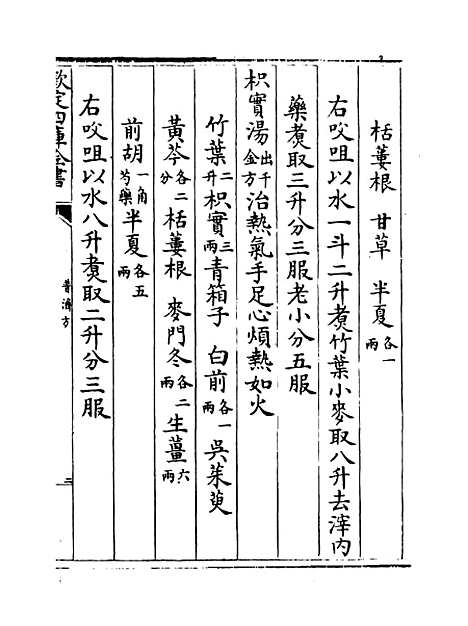 栝蔞根 甘草 半夏各一兩
右㕮咀以水一斗二升煮竹葉小麥取八升去滓内
藥煮取三升分三服老小分五服
枳實湯出千金方治熱氣手足心煩熱如火
竹葉二升枳實三兩青箱子 白前各一兩吳茱萸
黃芩各二分栝蔞根 麥門冬各二兩生薑六兩
前胡一角芍藥半夏各五兩
右㕮咀以水八升煮取二升分三服
欽定四庫全書
普濟方